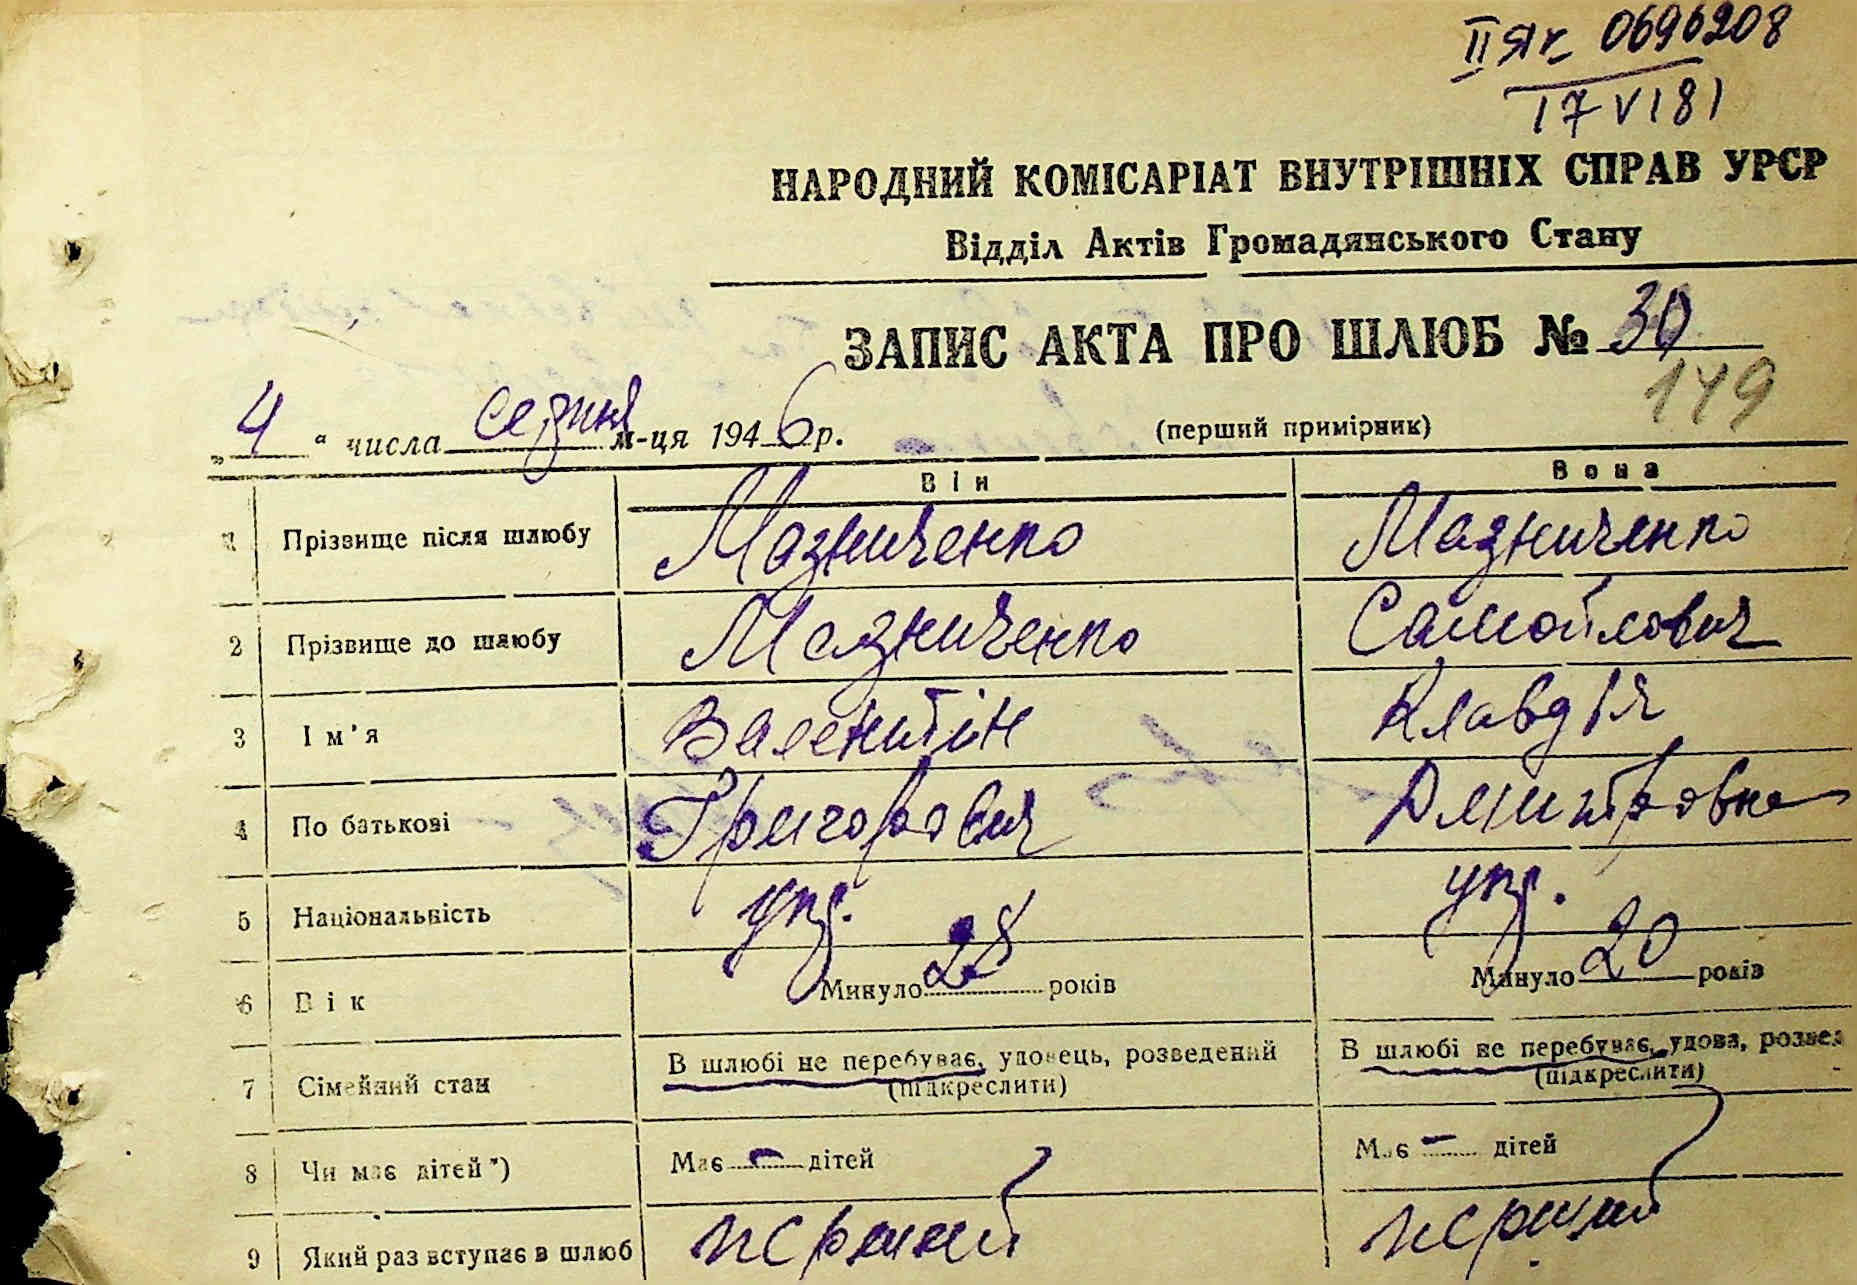 II ЯГ 0696208
17 VI 81
НАРОДНИЙ КОМІСАРІАТ ВНУТРІШНІХ СПРАВ УРСР
Відділ Актів Громадянського Стану
ЗАПИС АКТА ПРО ШЛЮБ № 30
149
„ 4 “ числа серпня м-ця 1946 р. (перший примірник)
Він Вона
1 Прізвище після шлюбу Мазниченко Мазниченко
2 Прізвище до шлюбу Мазниченко Самойлович
3 Ім'я Валентін Клавдія
4 По батькові Григорович Дмитровна
5 Національність укр. укр.
6 Вік Минуло 28 років Минуло 20 років
7 Сімейний стан В шлюбі не перебуває, удовець, розведений В шлюбі не перебуває, удова, розвед
(підкреслити) (підкреслити)
8 Чи має дітей*) Має - дітей Має - дітей
9 Який раз вступає в шлюб перший перший